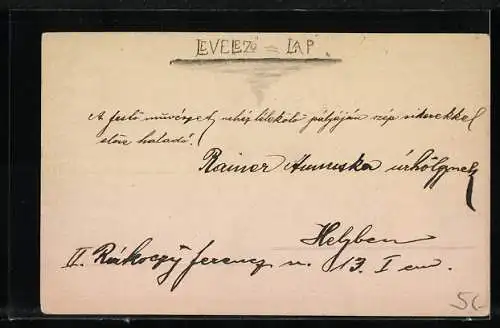 LEVELEZŐ = LAP.
A festő művészet, nehéz lélekölő pályáján szép sikerekkel
előre haladó!
Rainer Annuska úrhölgynek
Helyben
II. Rákoczÿ ferencz u. 13. I em.
5(-